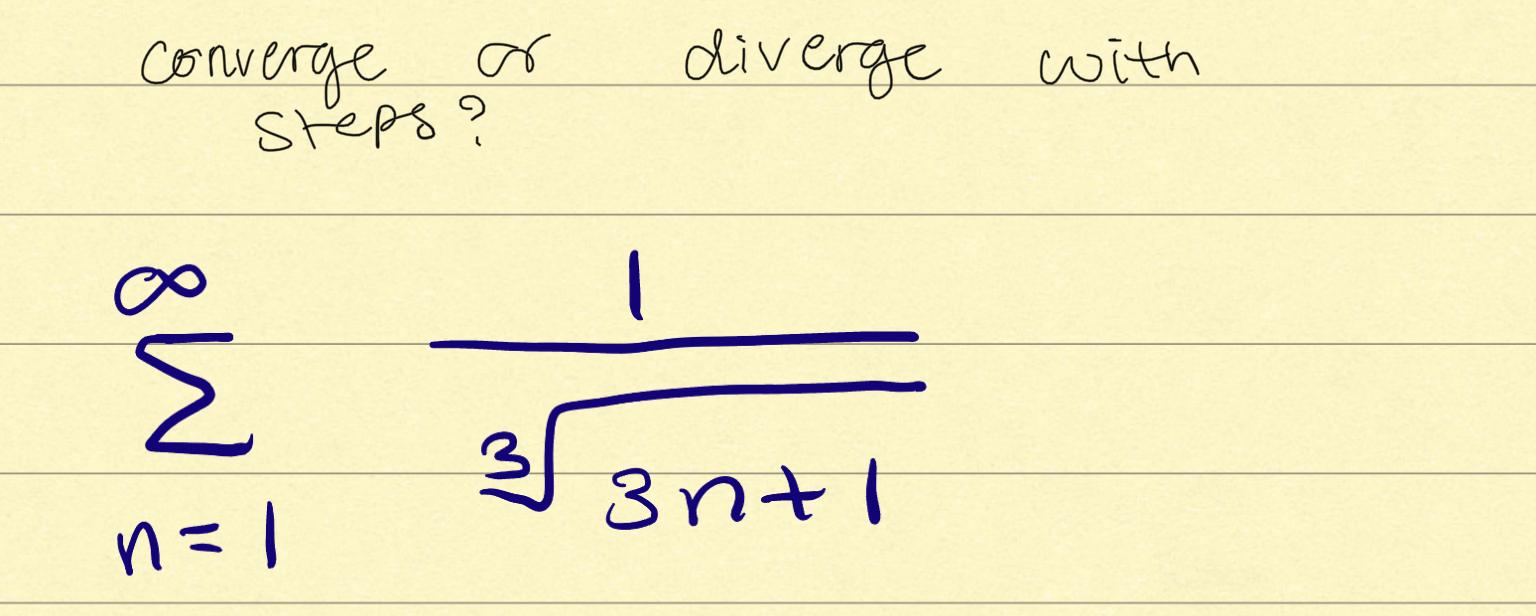 converge or diverge with
steps?
∞
∑ 1 / ∛(3n+1)
n=1